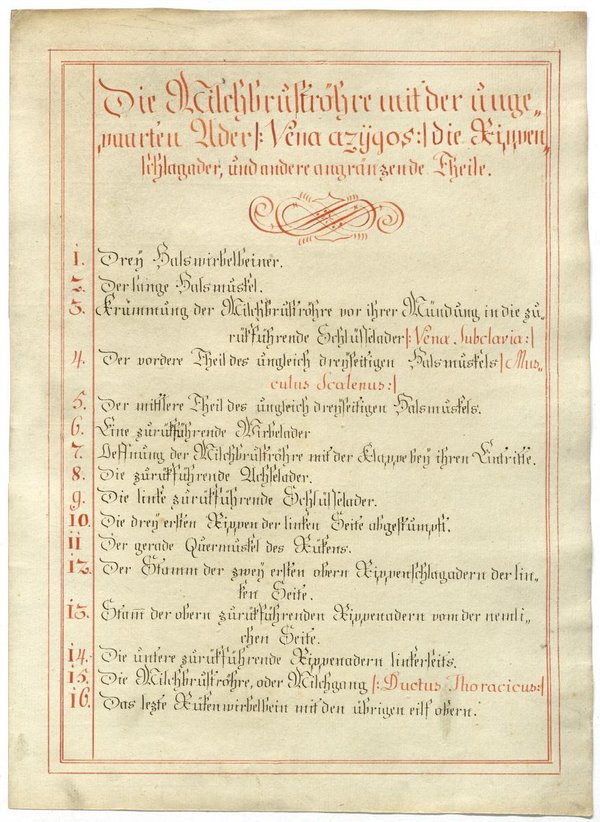 Die Milchbruströhre mit der unge„
paarten Ader |: Vena azÿgos :| die Rippen„
schlagader, und andere angränzende Theile.
1. Dreÿ Halswirbelbeiner.
2. Der lange Halsmuskel.
3. Krümmung der Milchbruströhre vor ihrer Mündung in die zu„
rükführende Schlüsselader |: Vena Subclavia :|
4. Der vordere Theil des ungleich dreÿseitigen Halsmuskels |: Mus„
culus Scalenus :|
5. Der mittlere Theil des ungleich dreÿseitigen Halsmuskels.
6. Eine zurükführende Wirbelader
7. Oeffnung der Milchbruströhre mit der Klappe beÿ ihren Eintritte.
8. Die zurükführende Achselader.
9. Die linke zurükführende Schlüsselader.
10. Die dreÿ ersten Rippen der linken Seite abgestumpft.
11 Der gerade Quermuskel des Rükens.
12. Der Stamm der zweÿ ersten obern Rippenschlagadern der lin„
ken Seite.
13. Stam̄ der obern zurükführenden Rippenadern vom der nemli„
chen Seite.
14. Die untere zurükführende Rippenadern linkerseits.
15. Die Milchbruströhre, oder Milchgang |: Ductus Thoracicus :|
16. Das lezte Rükenwirbelbein mit den übrigen eilf obern.